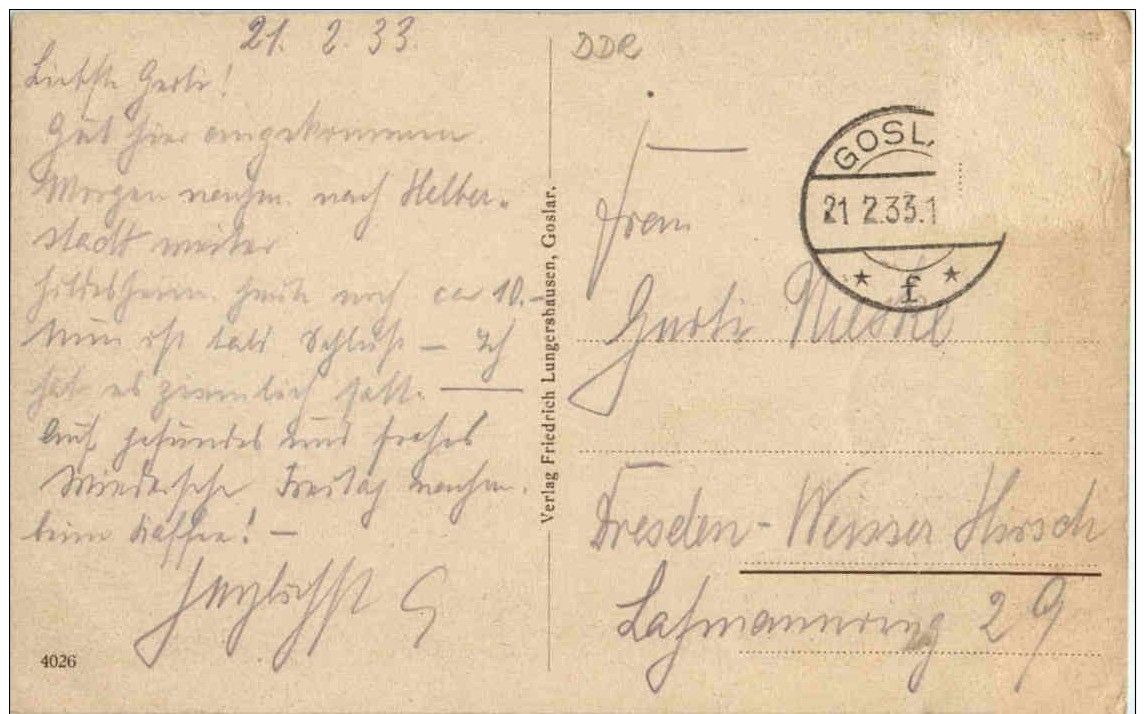 21. 2. 33.
Liebste Gerti!
Gut hier angekommen.
Morgen nachm. nach Halber-
stadt weiter
Hildesheim. heute noch ca 10.–
Nun ist bald Schluß – Ich
hab es ziemlich satt. —
Auf gesundes und frohes
Wiedersehn Freitag nachm.
beim Kaffee! –
Herzlichst G
4026
Verlag Friedrich Lungershausen, Goslar.
DDR
GOSL
21 2.33.1
* f *
Frau
Gerti
Dresden - Weisser Hirsch
Lahmannring 29